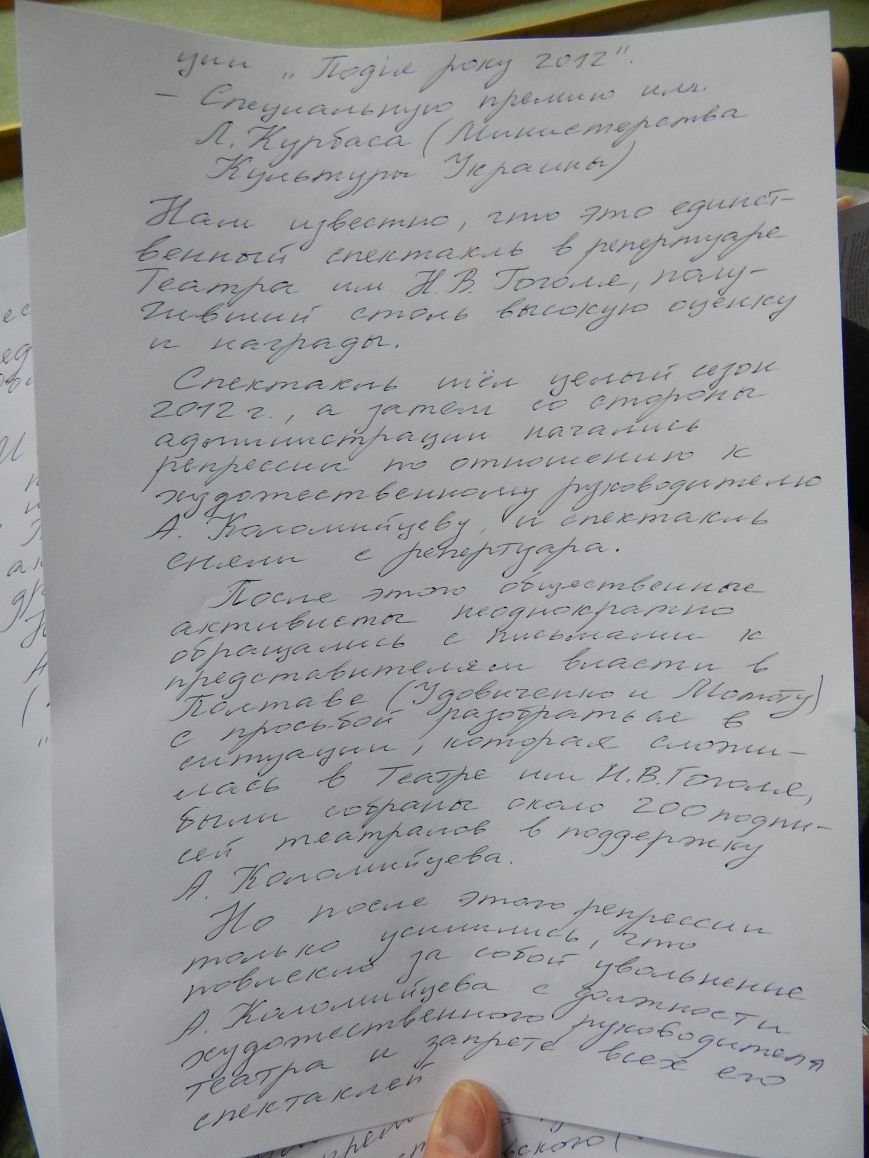 ции „Подія року 2012".
– Специальную премию им.
Л. Курбаса (Министерства
Культуры Украины)
Нам известно, что это единст-
венный спектакль в репертуаре
Театра им. Н.В. Гоголя, полу-
чивший столь высокую оценку
и награды.
Спектакль шёл целый сезон
2012 г., а затем со стороны
администрации начались
репрессии по отношению к
художественному руководителю
А. Коломийцеву, и спектакль
сняли с репертуара.
После этого общественные
активисты неоднократно
обращались с письмами к
представителям власти в
Полтаве (Удовиченко и Момоту)
с просьбой разобраться в
ситуации, которая сложи-
лась в Театре им Н.В.Гоголя,
были собраны около 200 подпи-
сей театралов в поддержку
А. Коломийцева.
Но после этого репрессии
только усилились, что
повлекло за собой увольнение
А. Коломийцева с должности
художественного руководителя
театра и запрете всех его
спектаклей